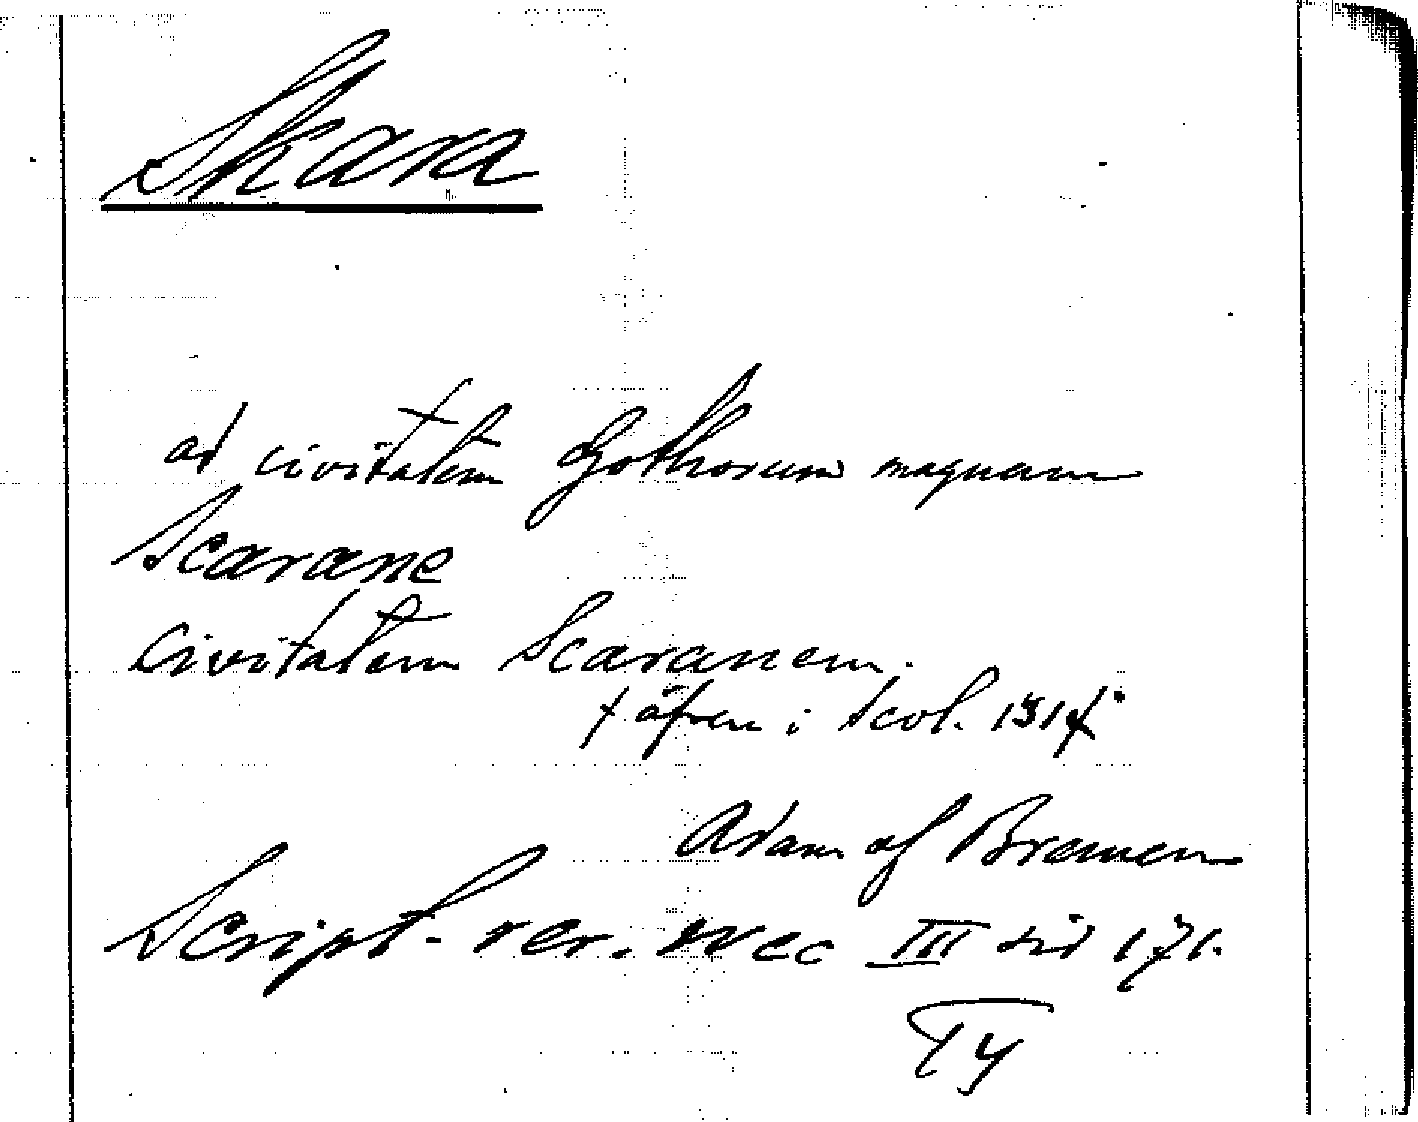 Skara
ad civitatem Gothorum magnam
Scarane
Civitatem Scaranem.
+ äfven i Scol. 131+
Adam af Bremen
Script. rer. svec III sid 171.
Ty